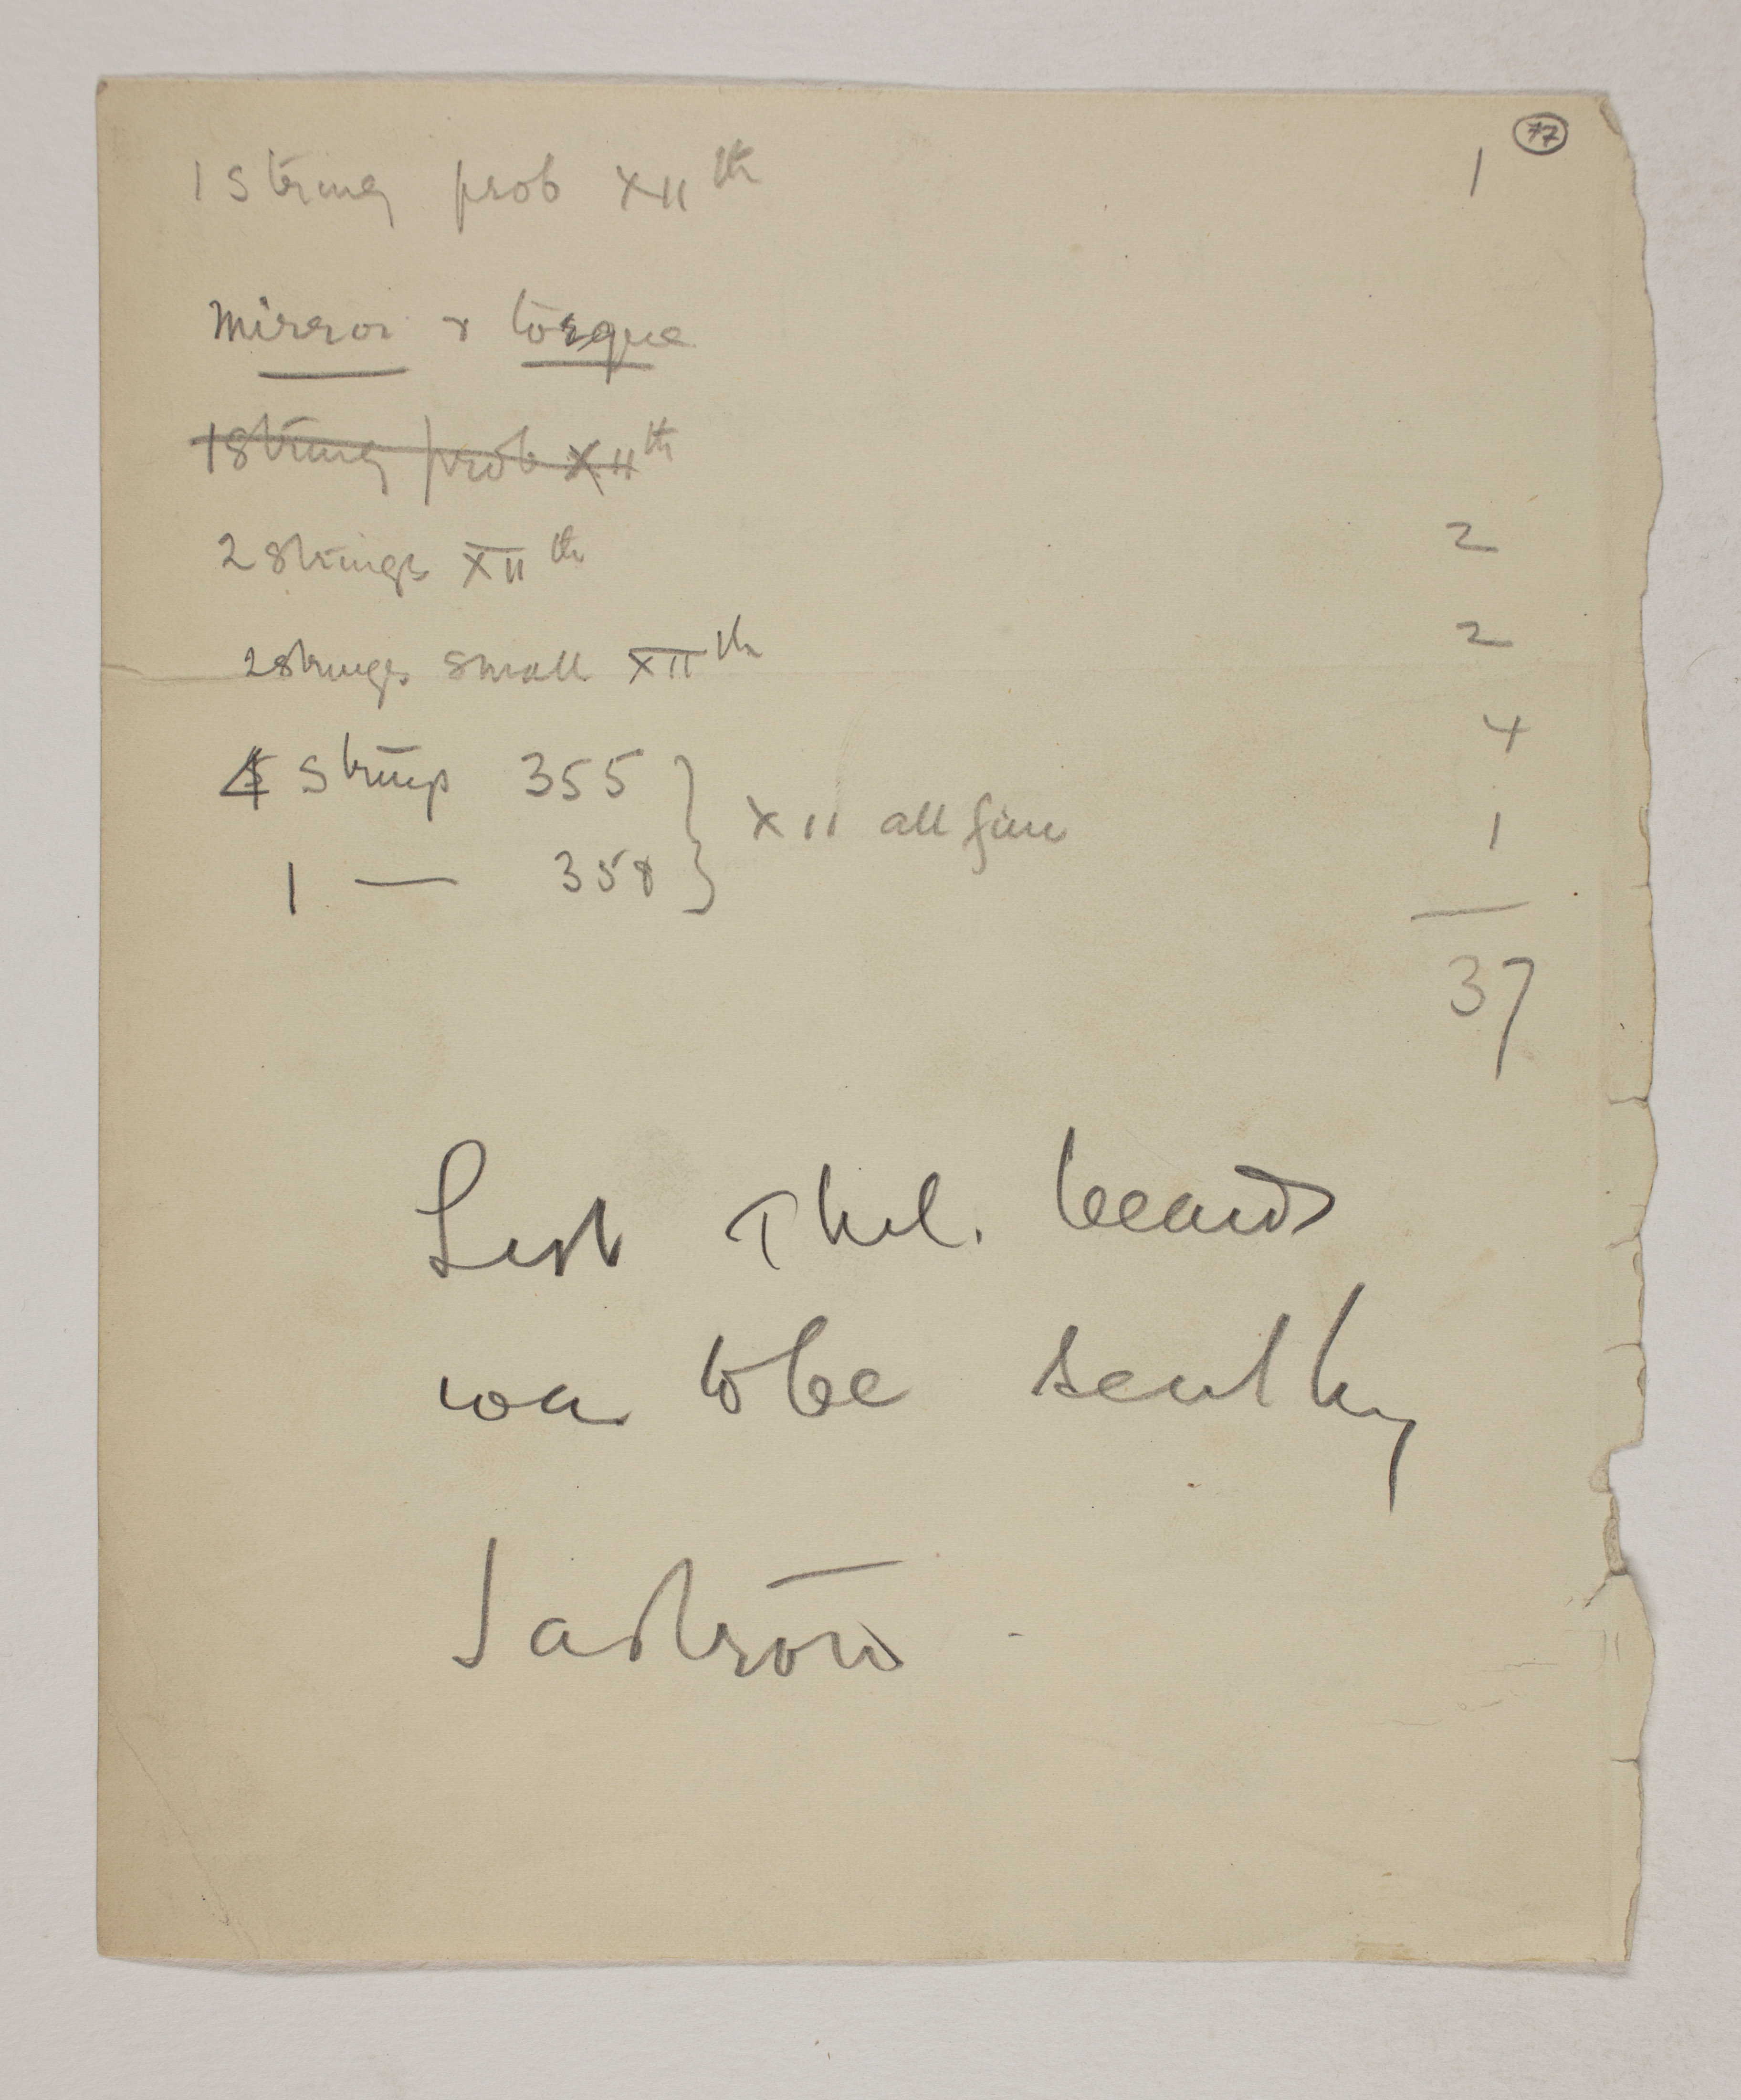 77
1 String prob XIIth 1
Mirror & torque
1 String prob XIIth
2 Strings XIIth 2
2 strings small XIIth 2
4 strings 355 4
XII all fine
1 — 358 1
37
List Phil. beads
wa to be sent by
Jastrow